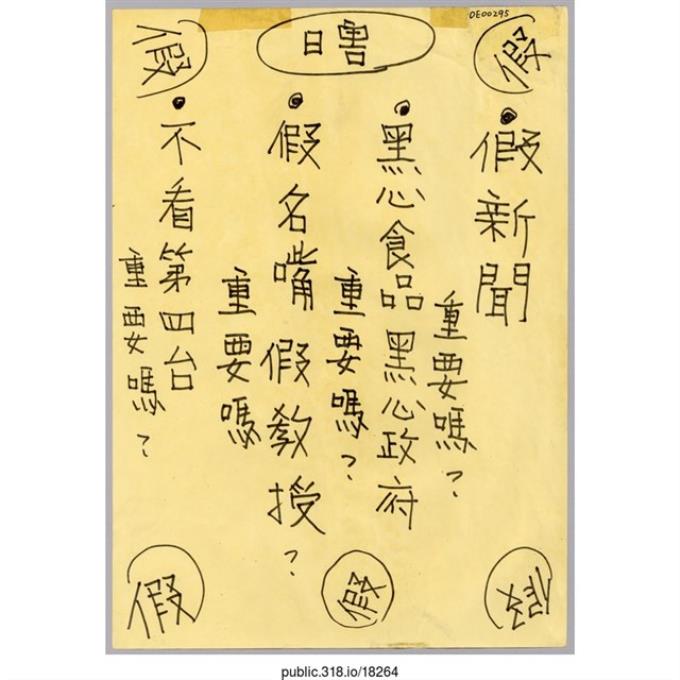 DE00295
假
日害
假
•假新聞
重要嗎？
•黑心食品黑心政府
重要嗎？
•假名嘴假教授？
重要嗎
•不看第四台
重要嗎？
假
假
假
public.318.io/18264